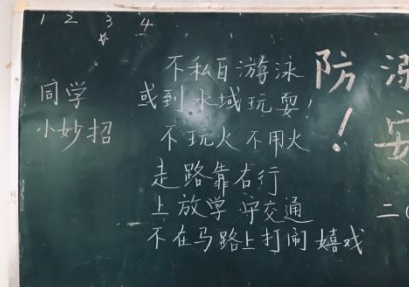 1 2 3 4
同学
小妙招
不私自游泳
或到水域玩耍!
不玩火 不用火
走路靠右行
上放学 守交通
不在马路上打闹嬉戏
防
!
安
二